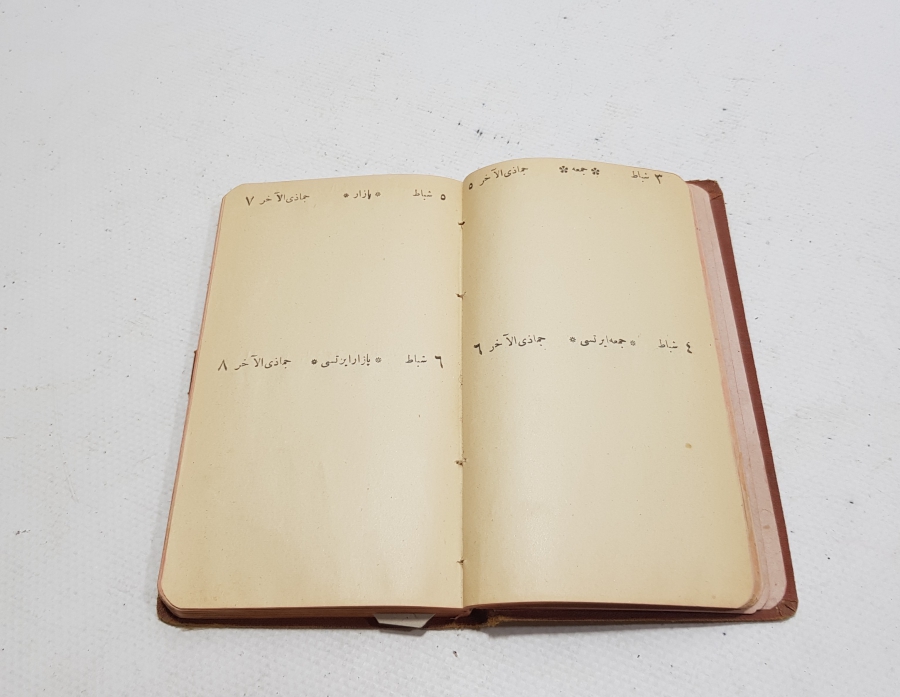 ٣ شباط ❋ جمعه ❋ جماذی‌الآخر ٥
٤ شباط * جمعه ایرتسی * جماذی‌الآخر ٦
٥ شباط * پازار * جماذی‌الآخر ٧
٦ شباط * پازار ایرتسی * جماذی‌الآخر ٨